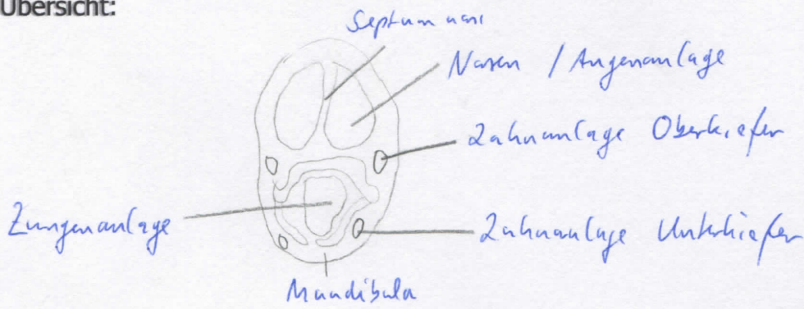 Übersicht:
Septum nasi
Nasen / Augenanlage
Zahnanlage Oberkiefer
Zungenanlage
Zahnanlage Unterkiefer
Mandibula